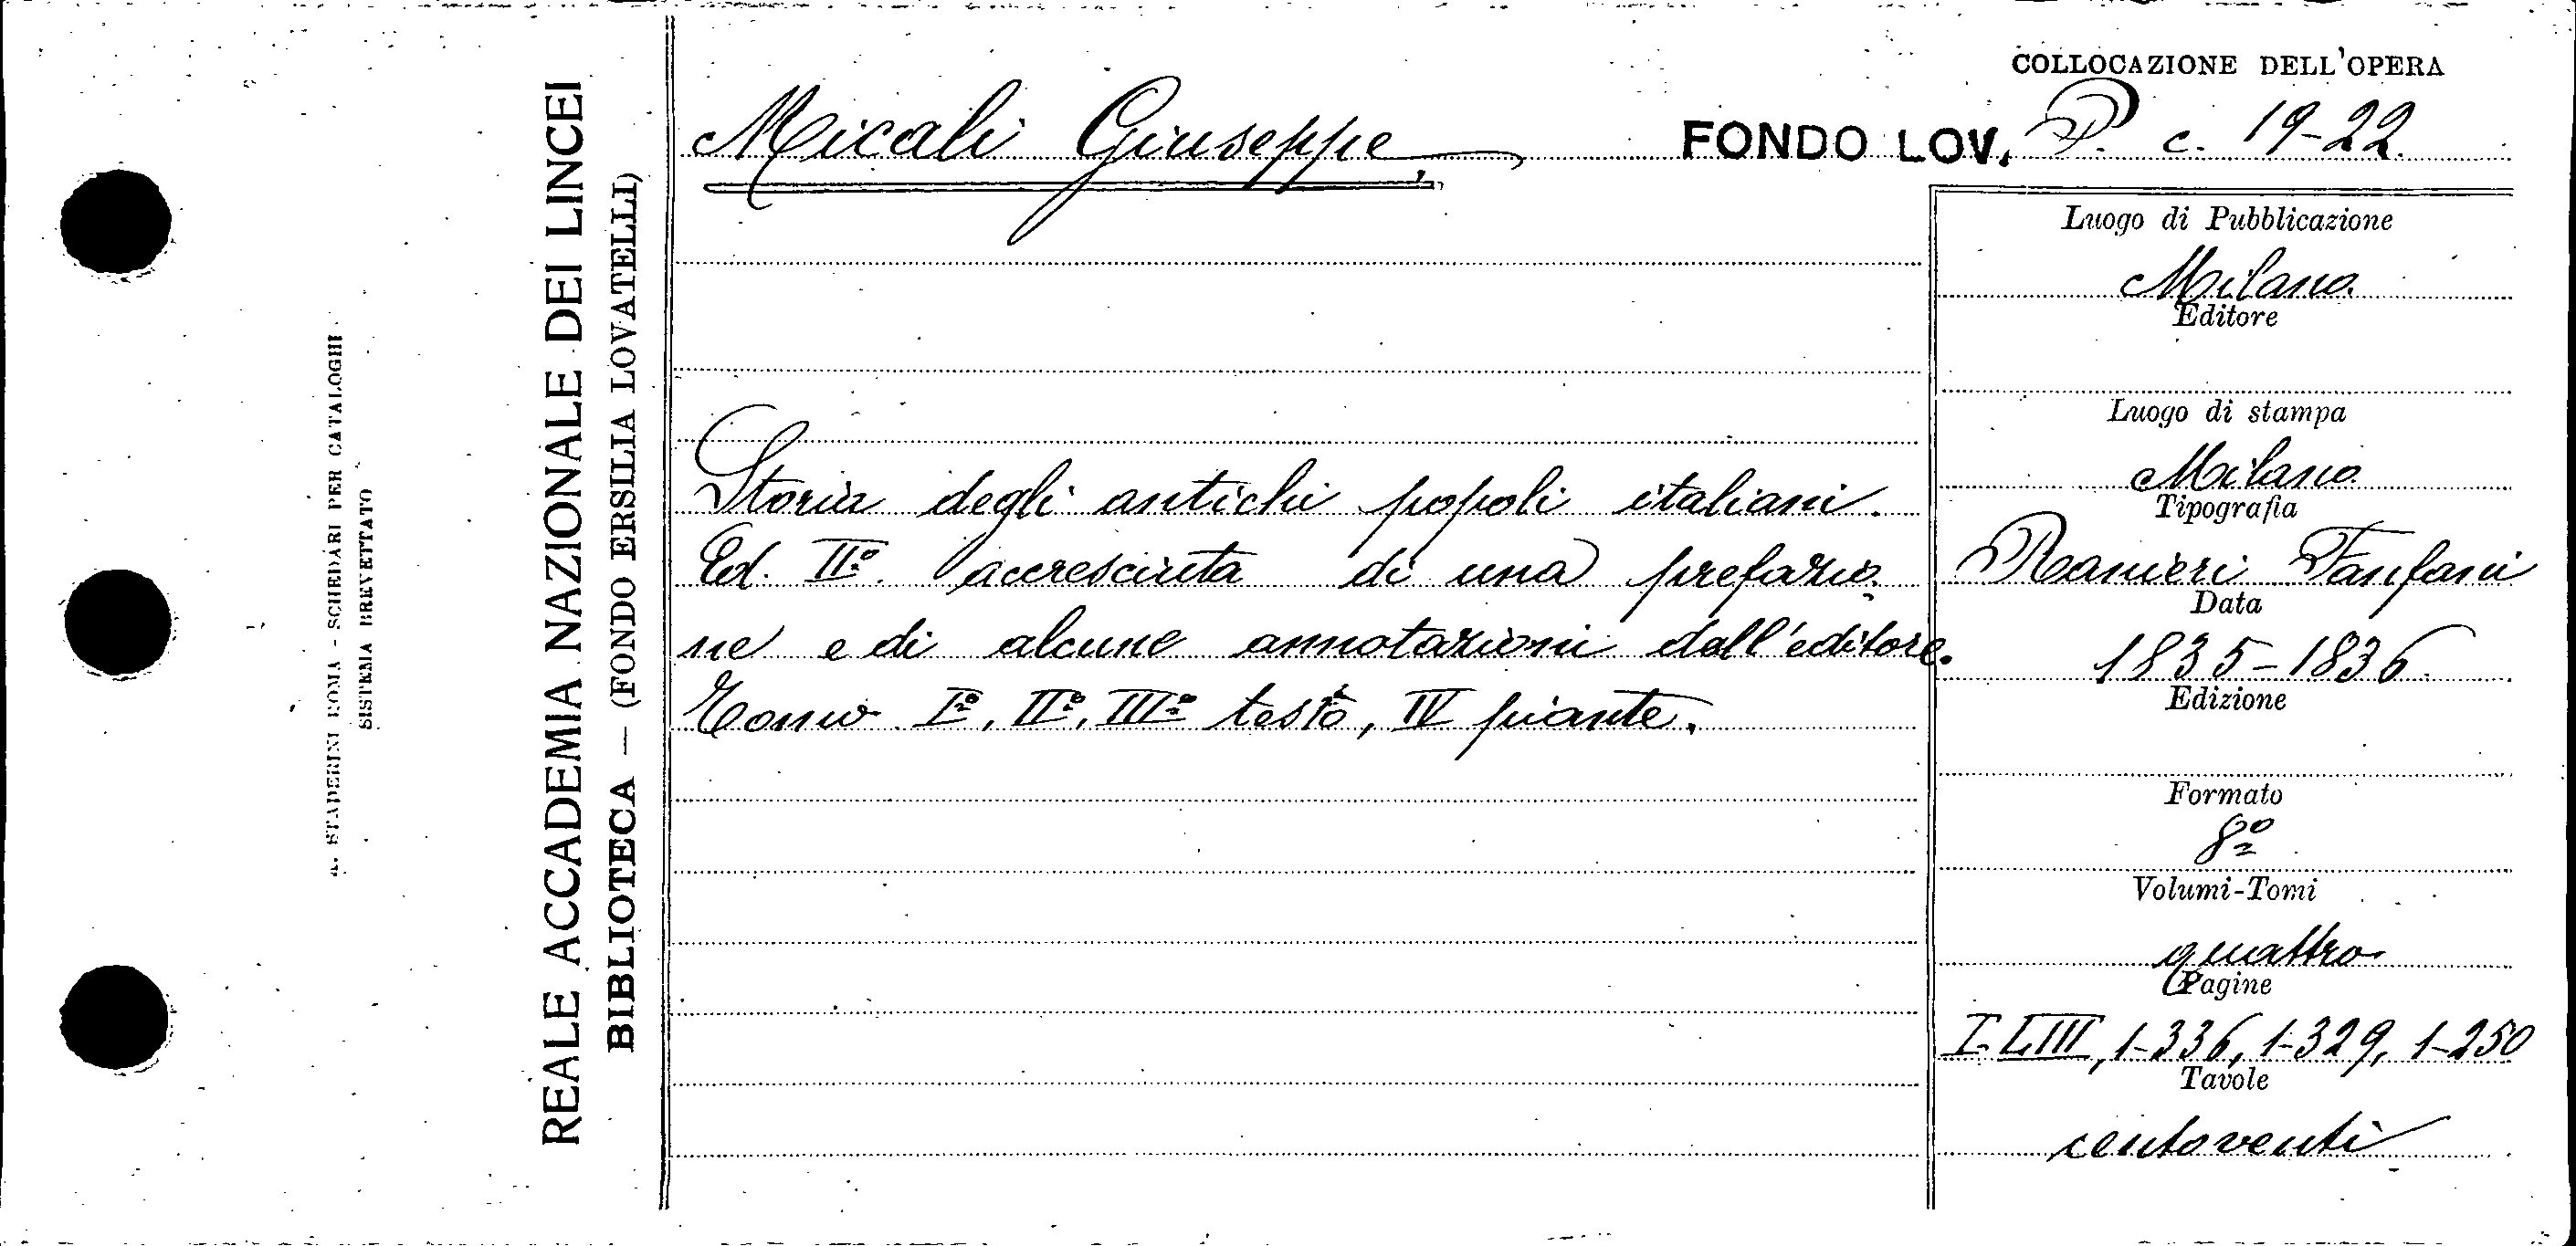 A. STADERINI ROMA - SCHEDARI PER CATALOGHI
SISTEMA BREVETTATO
REALE ACCADEMIA NAZIONALE DEI LINCEI
BIBLIOTECA — (FONDO ERSILIA LOVATELLI)
COLLOCAZIONE DELL'OPERA
Micali Giuseppe, FONDO LOV. P. c. 19-22.
Storia degli antichi popoli italiani.
Ed. IIª. accresciuta di una prefazio
ne e di alcune annotazioni dall'editore.
Tomo Iº, IIº, IIIº testo, IV piante.
Luogo di Pubblicazione
Milano
Editore
Luogo di stampa
Milano
Tipografia
Ranieri Fanfani
Data
1835-1836
Edizione
Formato
8º
Volumi-Tomi
quattro
Pagine
I-LIII, 1-336, 1-329, 1-250
Tavole
centoventi